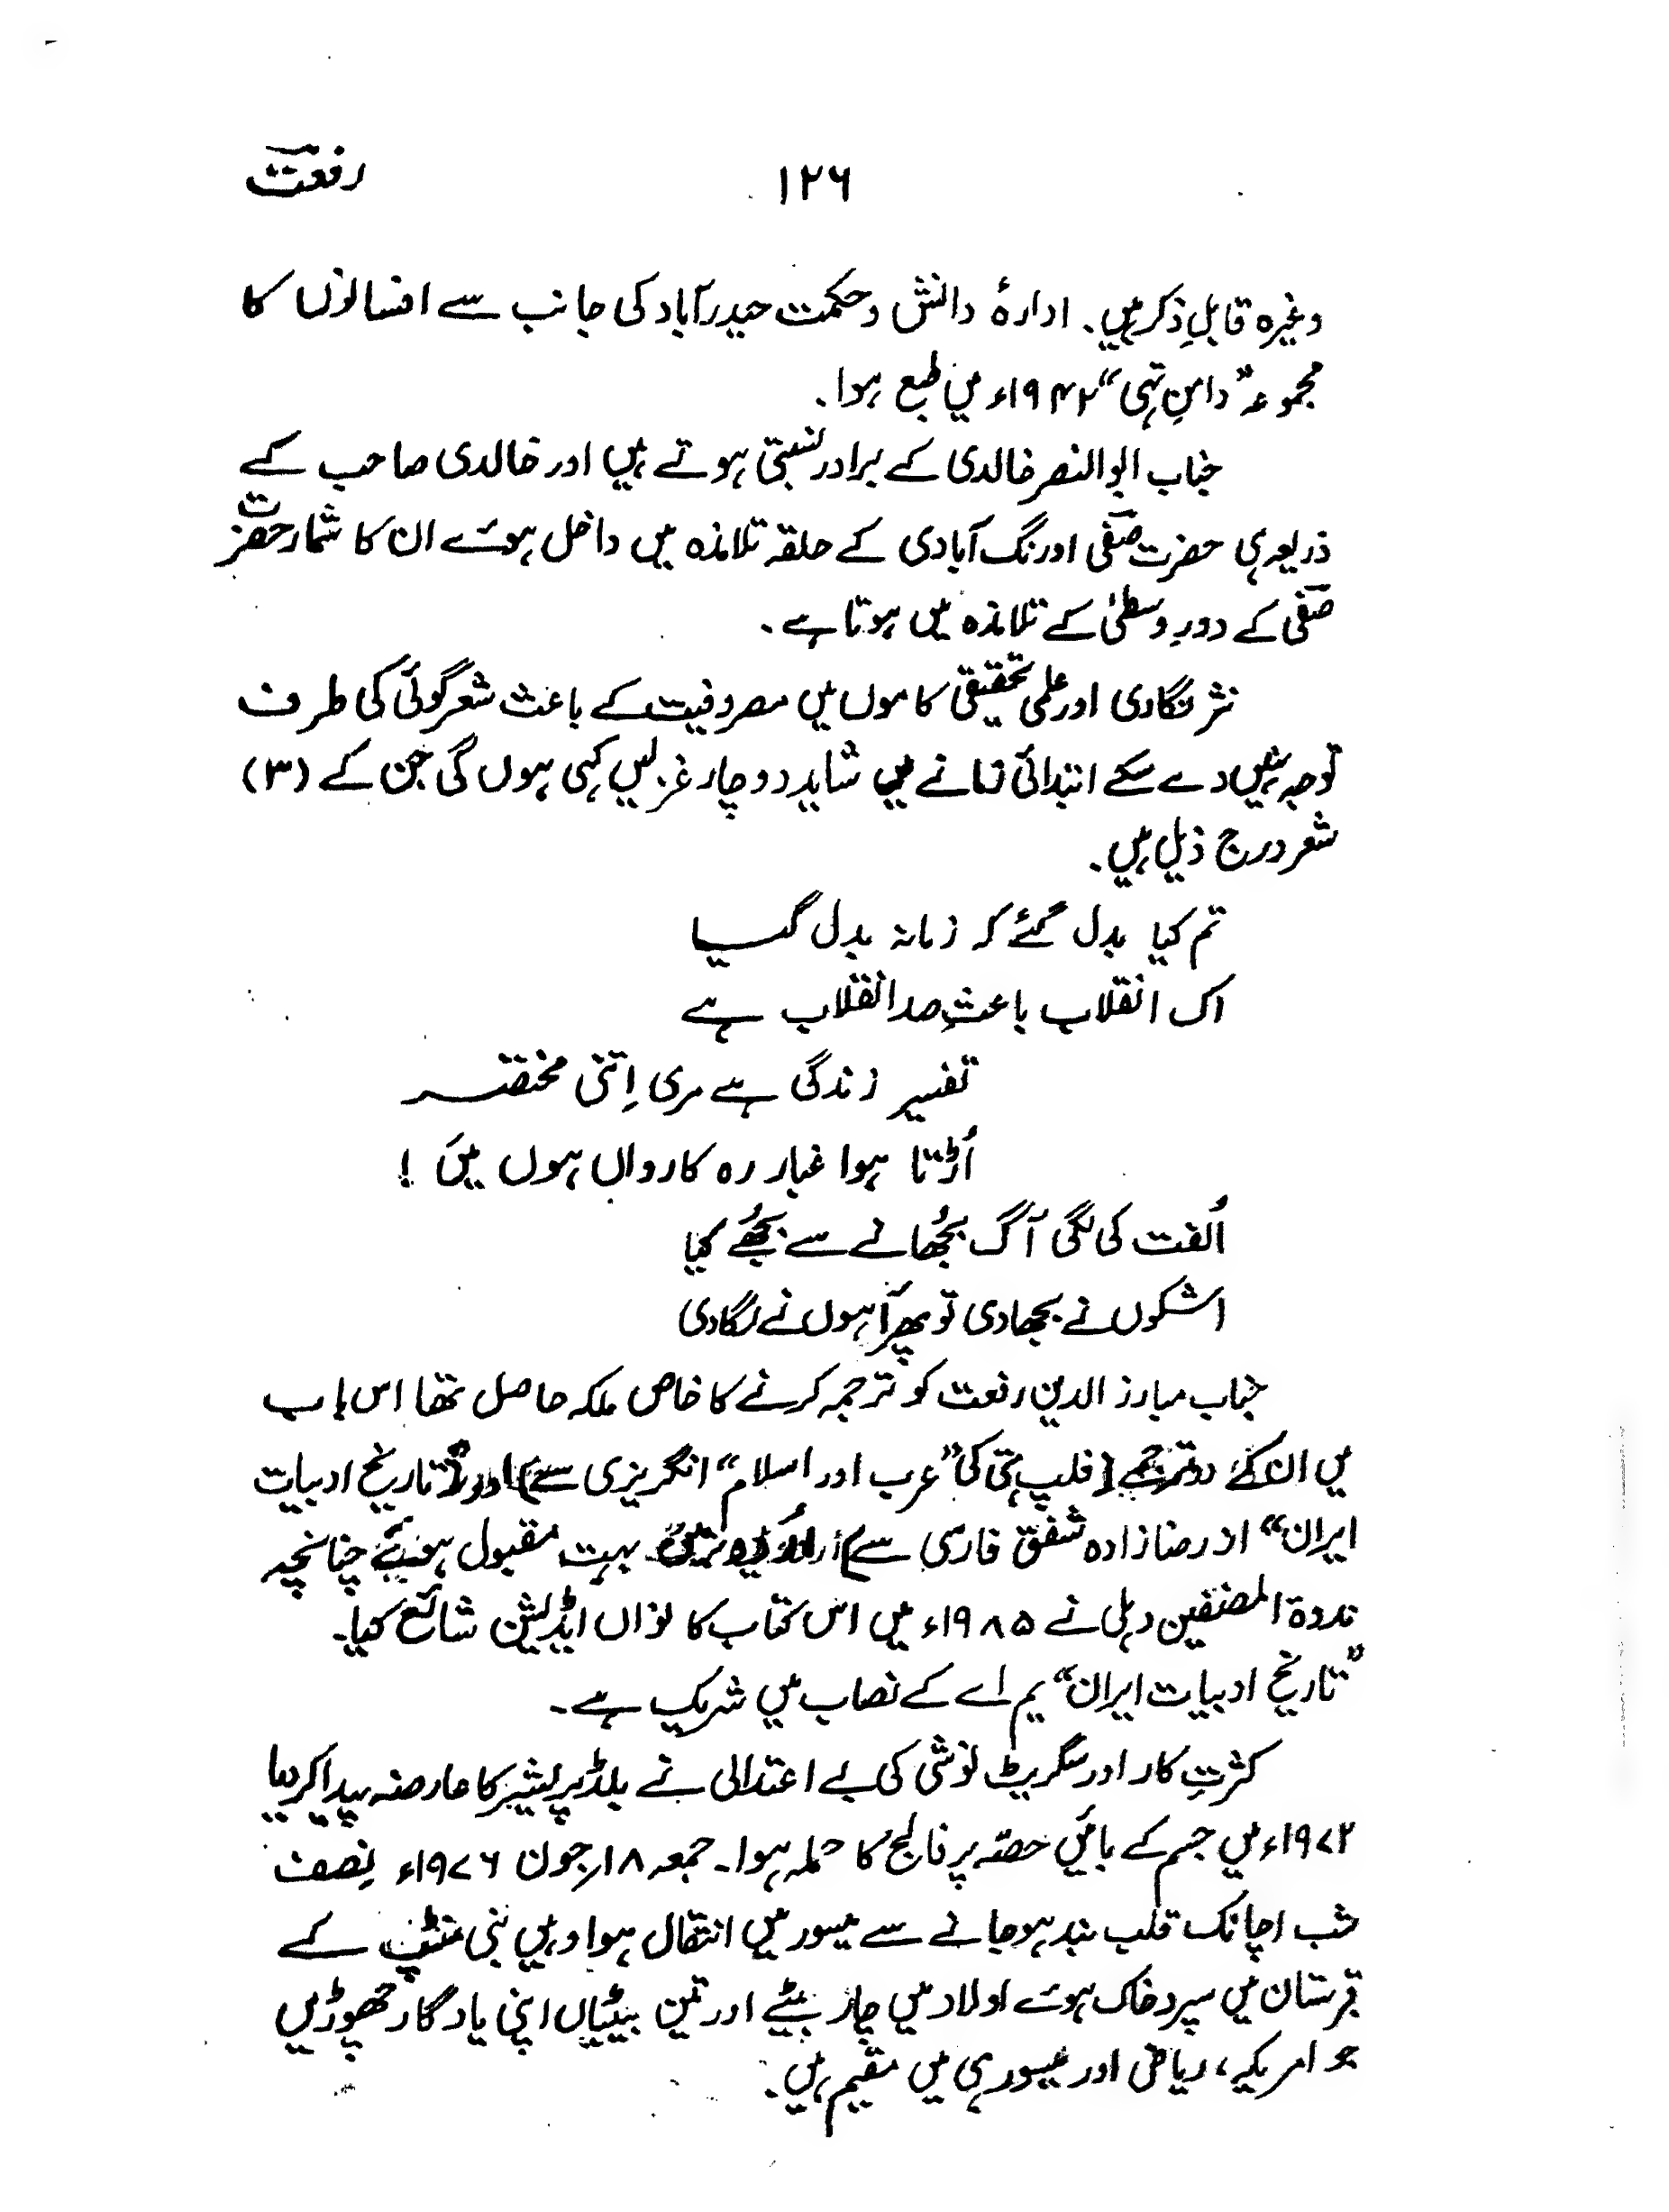 رفعتؔ
۱۲۶
وغیرہ قابلِ ذکر ہیں۔ ادارۂ دانش وحکمت حیدرآباد کی جانب سے افسانوں کا
مجموعہ ”دامنِ تہی“ ۱۹۴۲ء میں طبع ہوا۔
جناب ابوالنصر خالدی کے برادر نسبتی ہوتے ہیں اور خالدی صاحب کے
ذریعہ ہی حضرت صفیؔ اورنگ آبادی کے حلقہ تلامذہ میں داخل ہوئے ان کا شمار حضرت
صفیؔ کے دورِ وسطیٰ کے تلامذہ میں ہوتا ہے۔
نثر نگاری اور علمی تحقیقی کاموں میں مصروفیت کے باعث شعر گوئی کی طرف
توجہ نہیں دے سکے ابتدائی زمانے میں شاید دو چار غزلیں کہی ہوں گی جن کے (۳)
شعر درج ذیل ہیں۔
تم کیا بدل گئے کہ زمانہ بدل گیا
اک انقلاب باعثِ صد انقلاب ہے
تفسیر زندگی ہے مری اِتنی مختصر
اُڑتا ہوا غبار رہ کارواں ہوں میں !
اُلفت کی لگی آگ بُجھانے سے بُجھے کیا
اشکوں نے بجھادی تو پھر آہوں نے لگادی
جناب مبارز الدین رفعت کو ترجمہ کرنے کا خاص ملکہ حاصل تھا اس باب
میں ان کے دو ترجمے (فلپ ہتی کی ”عرب اور اسلام“ انگریزی سے) اور (”تاریخ ادبیات
ایران“ از رضا زادہ شفق فارسی سے) بہت مقبول ہوئے چنانچہ
ندوۃ المصنفین دہلی نے ۱۹۸۵ء میں اس کتاب کا نواں ایڈیشن شائع کیا۔
”تاریخ ادبیات ایران“ یم اے کے نصاب میں شریک ہے۔
کثرتِ کار اور سگریٹ نوشی کی بے اعتدالی نے بلڈ پریشر کا عارضہ پیدا کر دیا
۱۹۷۲ء میں جسم کے بائیں حصّہ پر فالج کا حملہ ہوا۔ جمعہ ۱۸؍جون ۱۹۷۶ء نصف
شب اچانک قلب بند ہو جانے سے میسور میں انتقال ہوا وہیں بنی منٹپ کے
قبرستان میں سپرد خاک ہوئے اولاد میں چار بیٹے اور تین بیٹیاں اپنی یادگار چھوڑیں
جو امریکہ، ریاض اور میسور ہی میں مقیم ہیں۔